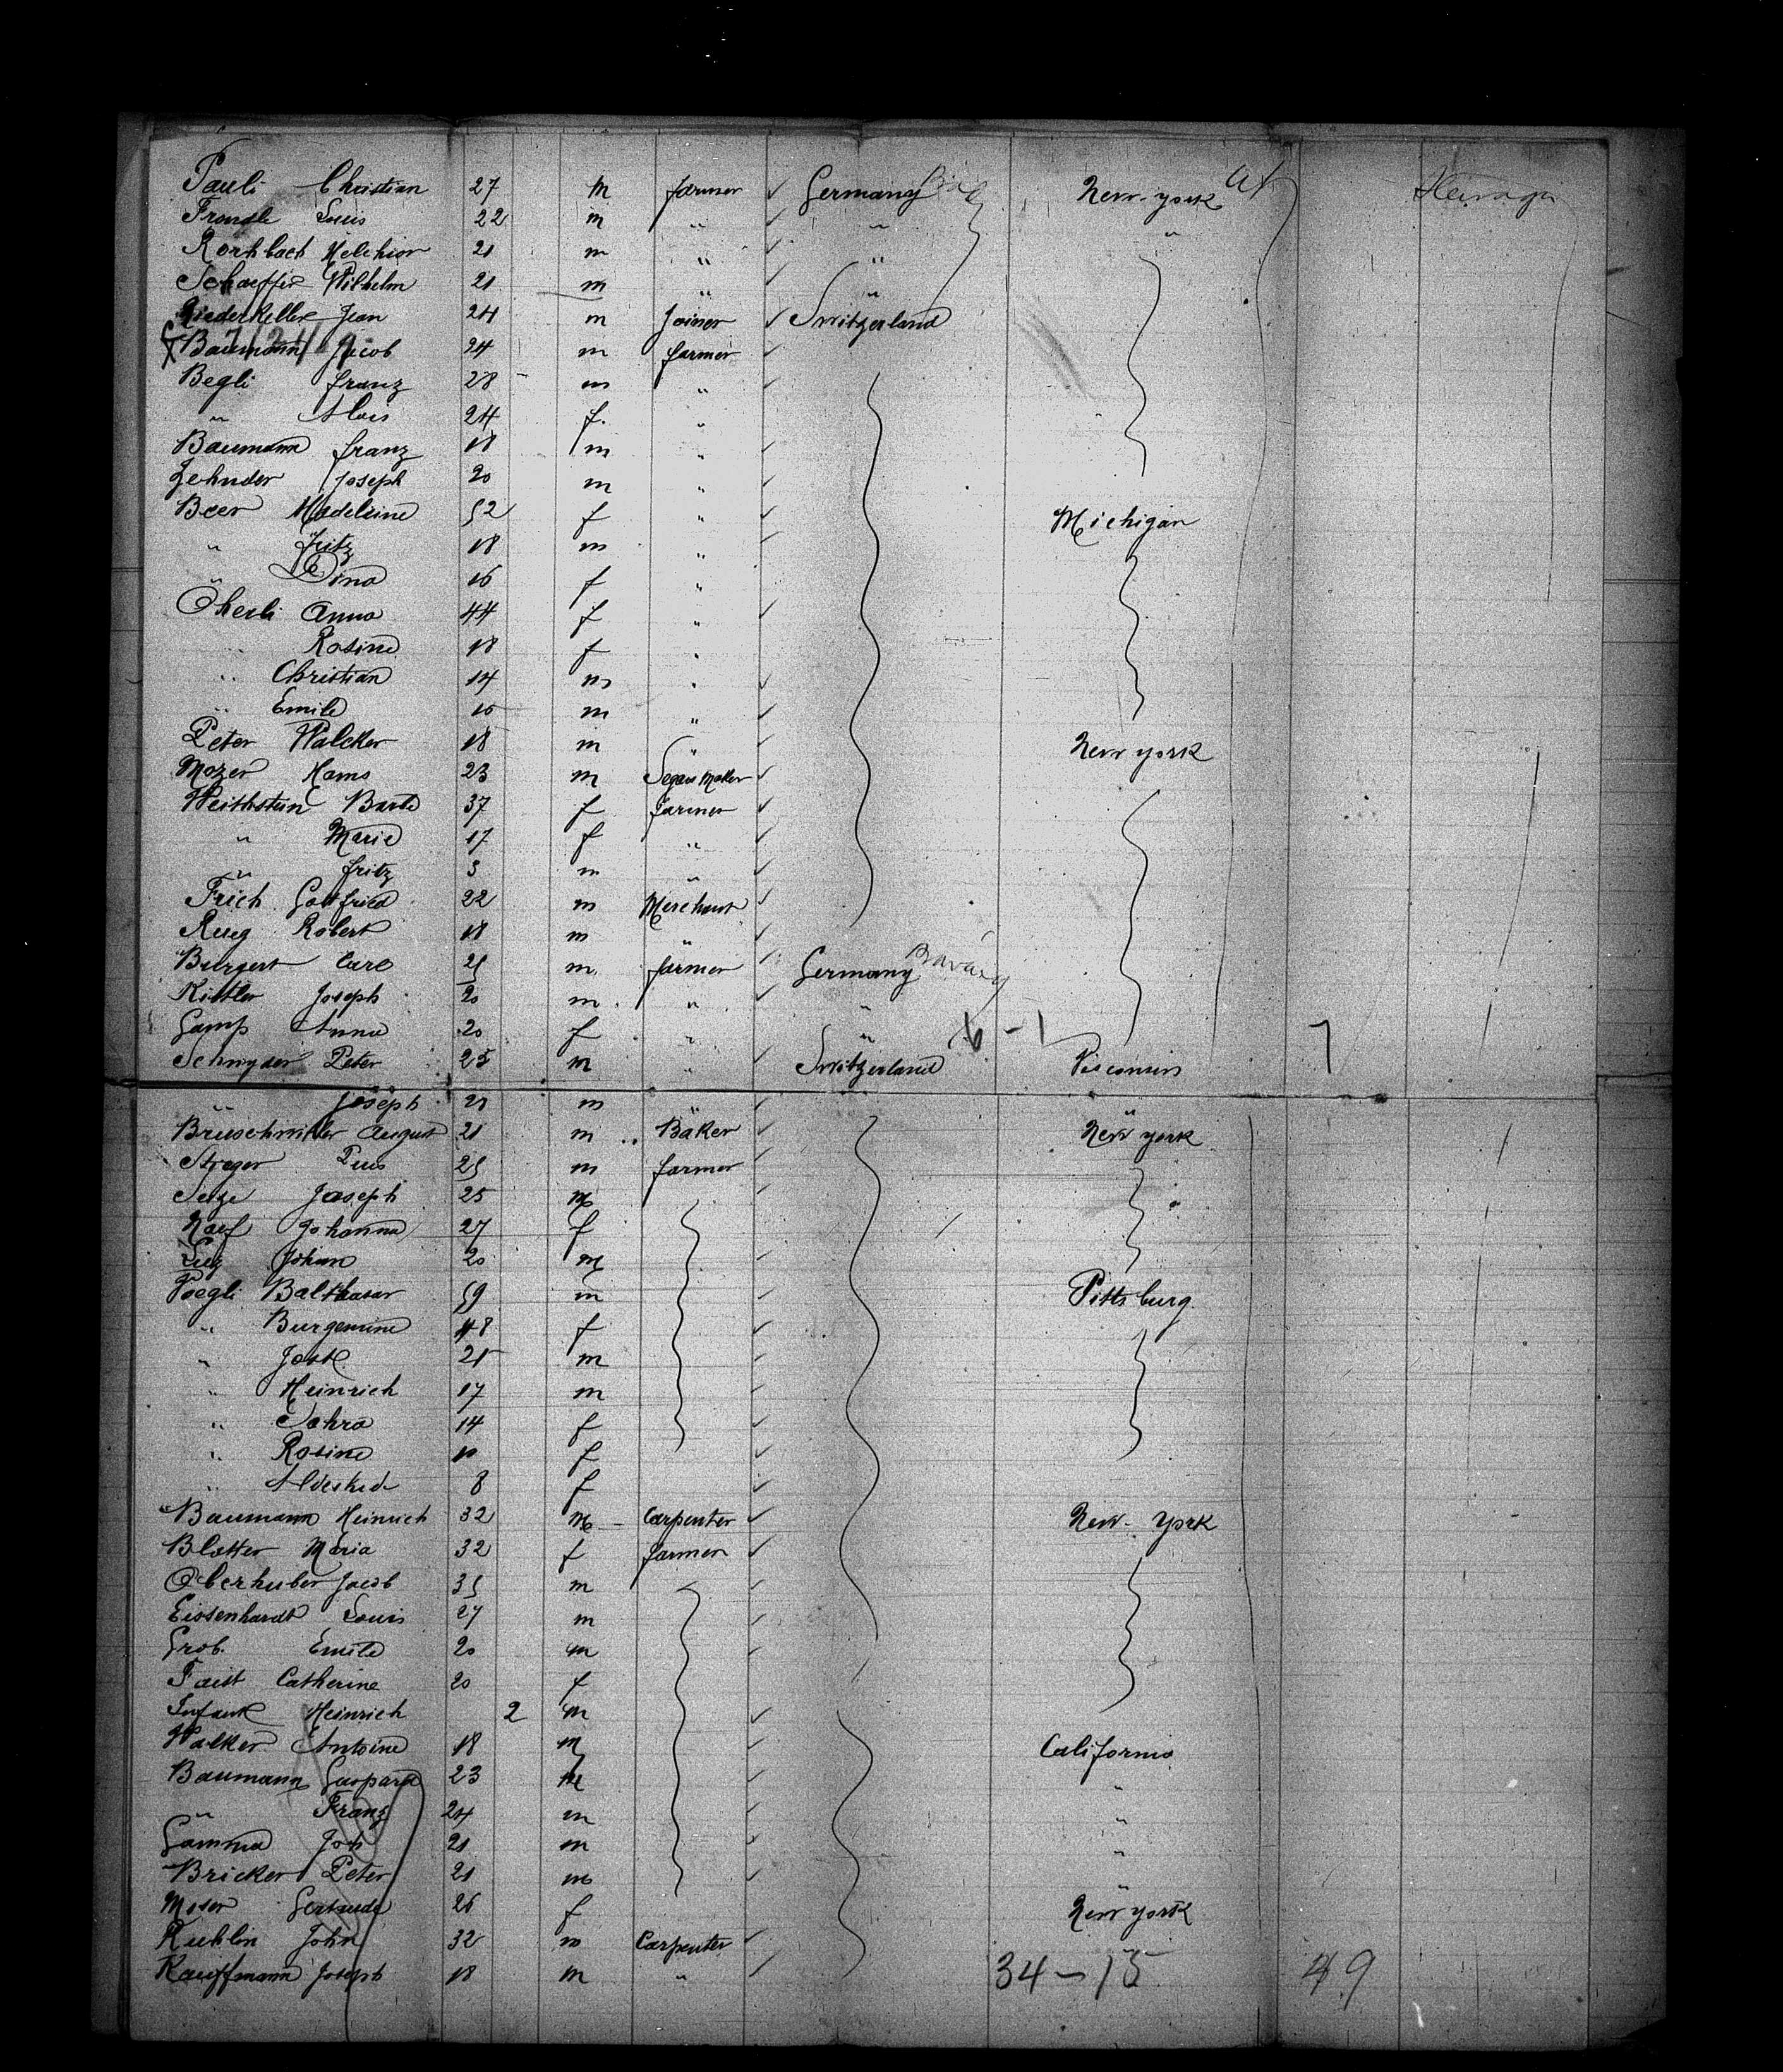 Pauli Christian 27 m farmer Germany New-york
Frondle Louis 22 m " " "
Rorhbach Melchior 21 m " "
Schaeffer Wilhelm 21 m " "
Niederkeller Jean 24 m Joiner Switzerland
Baumann Jacob 24 m farmer
Begli franz 28 m "
" Alois 24 f. "
Baumann franz 18 m "
Zehnder Joseph 20 m "
Beer Madeleine 52 f " Michigan
" Fritz 18 m "
" Lina 16 f "
Öherli Anna 44 f "
" Rosine 18 f "
" Christian 14 m "
" Emile 10 m "
Peter Walcker 18 m " New york
Mozer Hans 23 m Segars Maker
Weithstein Barb 37 f farmer
" Marie 17 f "
" fritz 5 m "
Frich Gottfried 22 m Merchant
Rueg Robert 18 m "
Burgert Carl 25 m farmer Germany Bavaria
Kistler Joseph 20 m " "
Gamp Anna 20 f " " 6-1 7
Schnyder Peter 25 m " Switzerland Visconsin
" Joseph 21 m " "
Brüschwiller August 21 m Bäker New york
Steger Pius 25 m farmer
Seize Joseph 25 m "
Naef Johanna 27 f
Lug Johan 20 m
Voegli Balthasar 59 m Pittsburg
" Burgenine 48 f
" Jost 21 m
" Heinrich 17 m
" Sahra 14 f
" Rosine 10 f
" 8 f
Baumann Heinrich 32 m Carpenter New-York
Blatter Maria 32 f farmer
Oberhuber Jacob 35 m
Eissenhardt Louis 27 m
Grob Emile 20 m
Faist Catherine 20 f
Infant Heinrich 2 m
Walker Antoine 18 m California
Baumann Gaspard 23 m "
" Franz 24 m "
Gamma Jos 21 m "
Bricker Peter 21 m "
Moser Gertrude 26 f New york
Ruhlin John 32 m Carpenter "
Kauffmann Joseph 18 m " 34-15 49